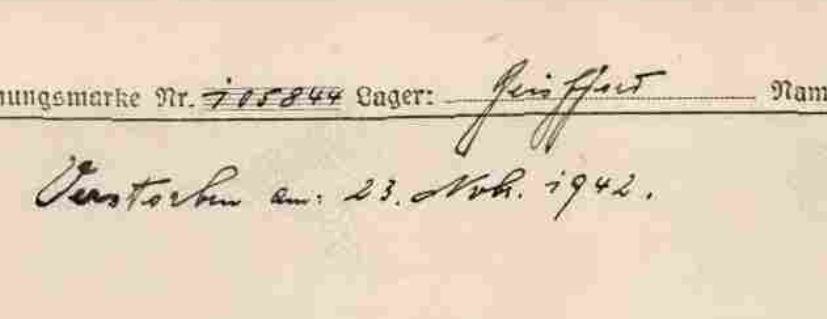 nungsmarke Nr. 105844 Lager: Nam
Verstorben am: 23. Nov. 1942.